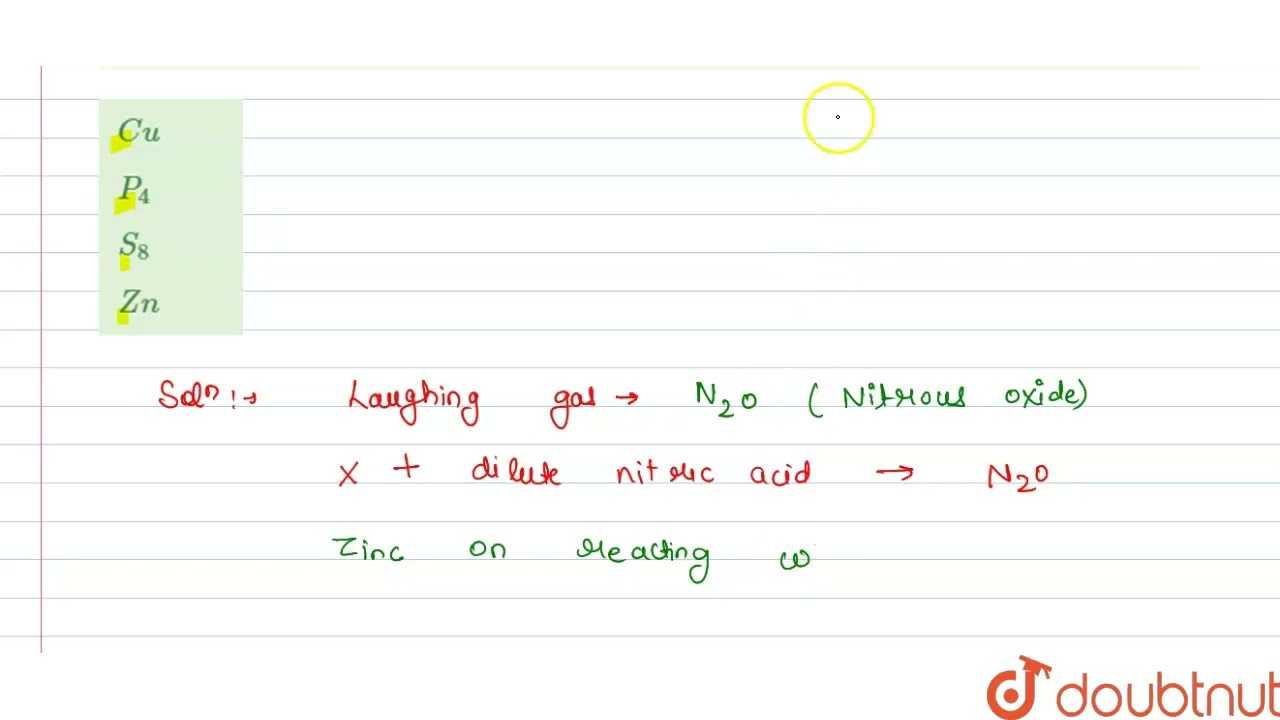 Cu
P4
S8
Zn
Soln :→ Laughing gas → N2O (Nitrous oxide)
X + dilute nitric acid → N2O
Zinc on reacting w
doubtnut